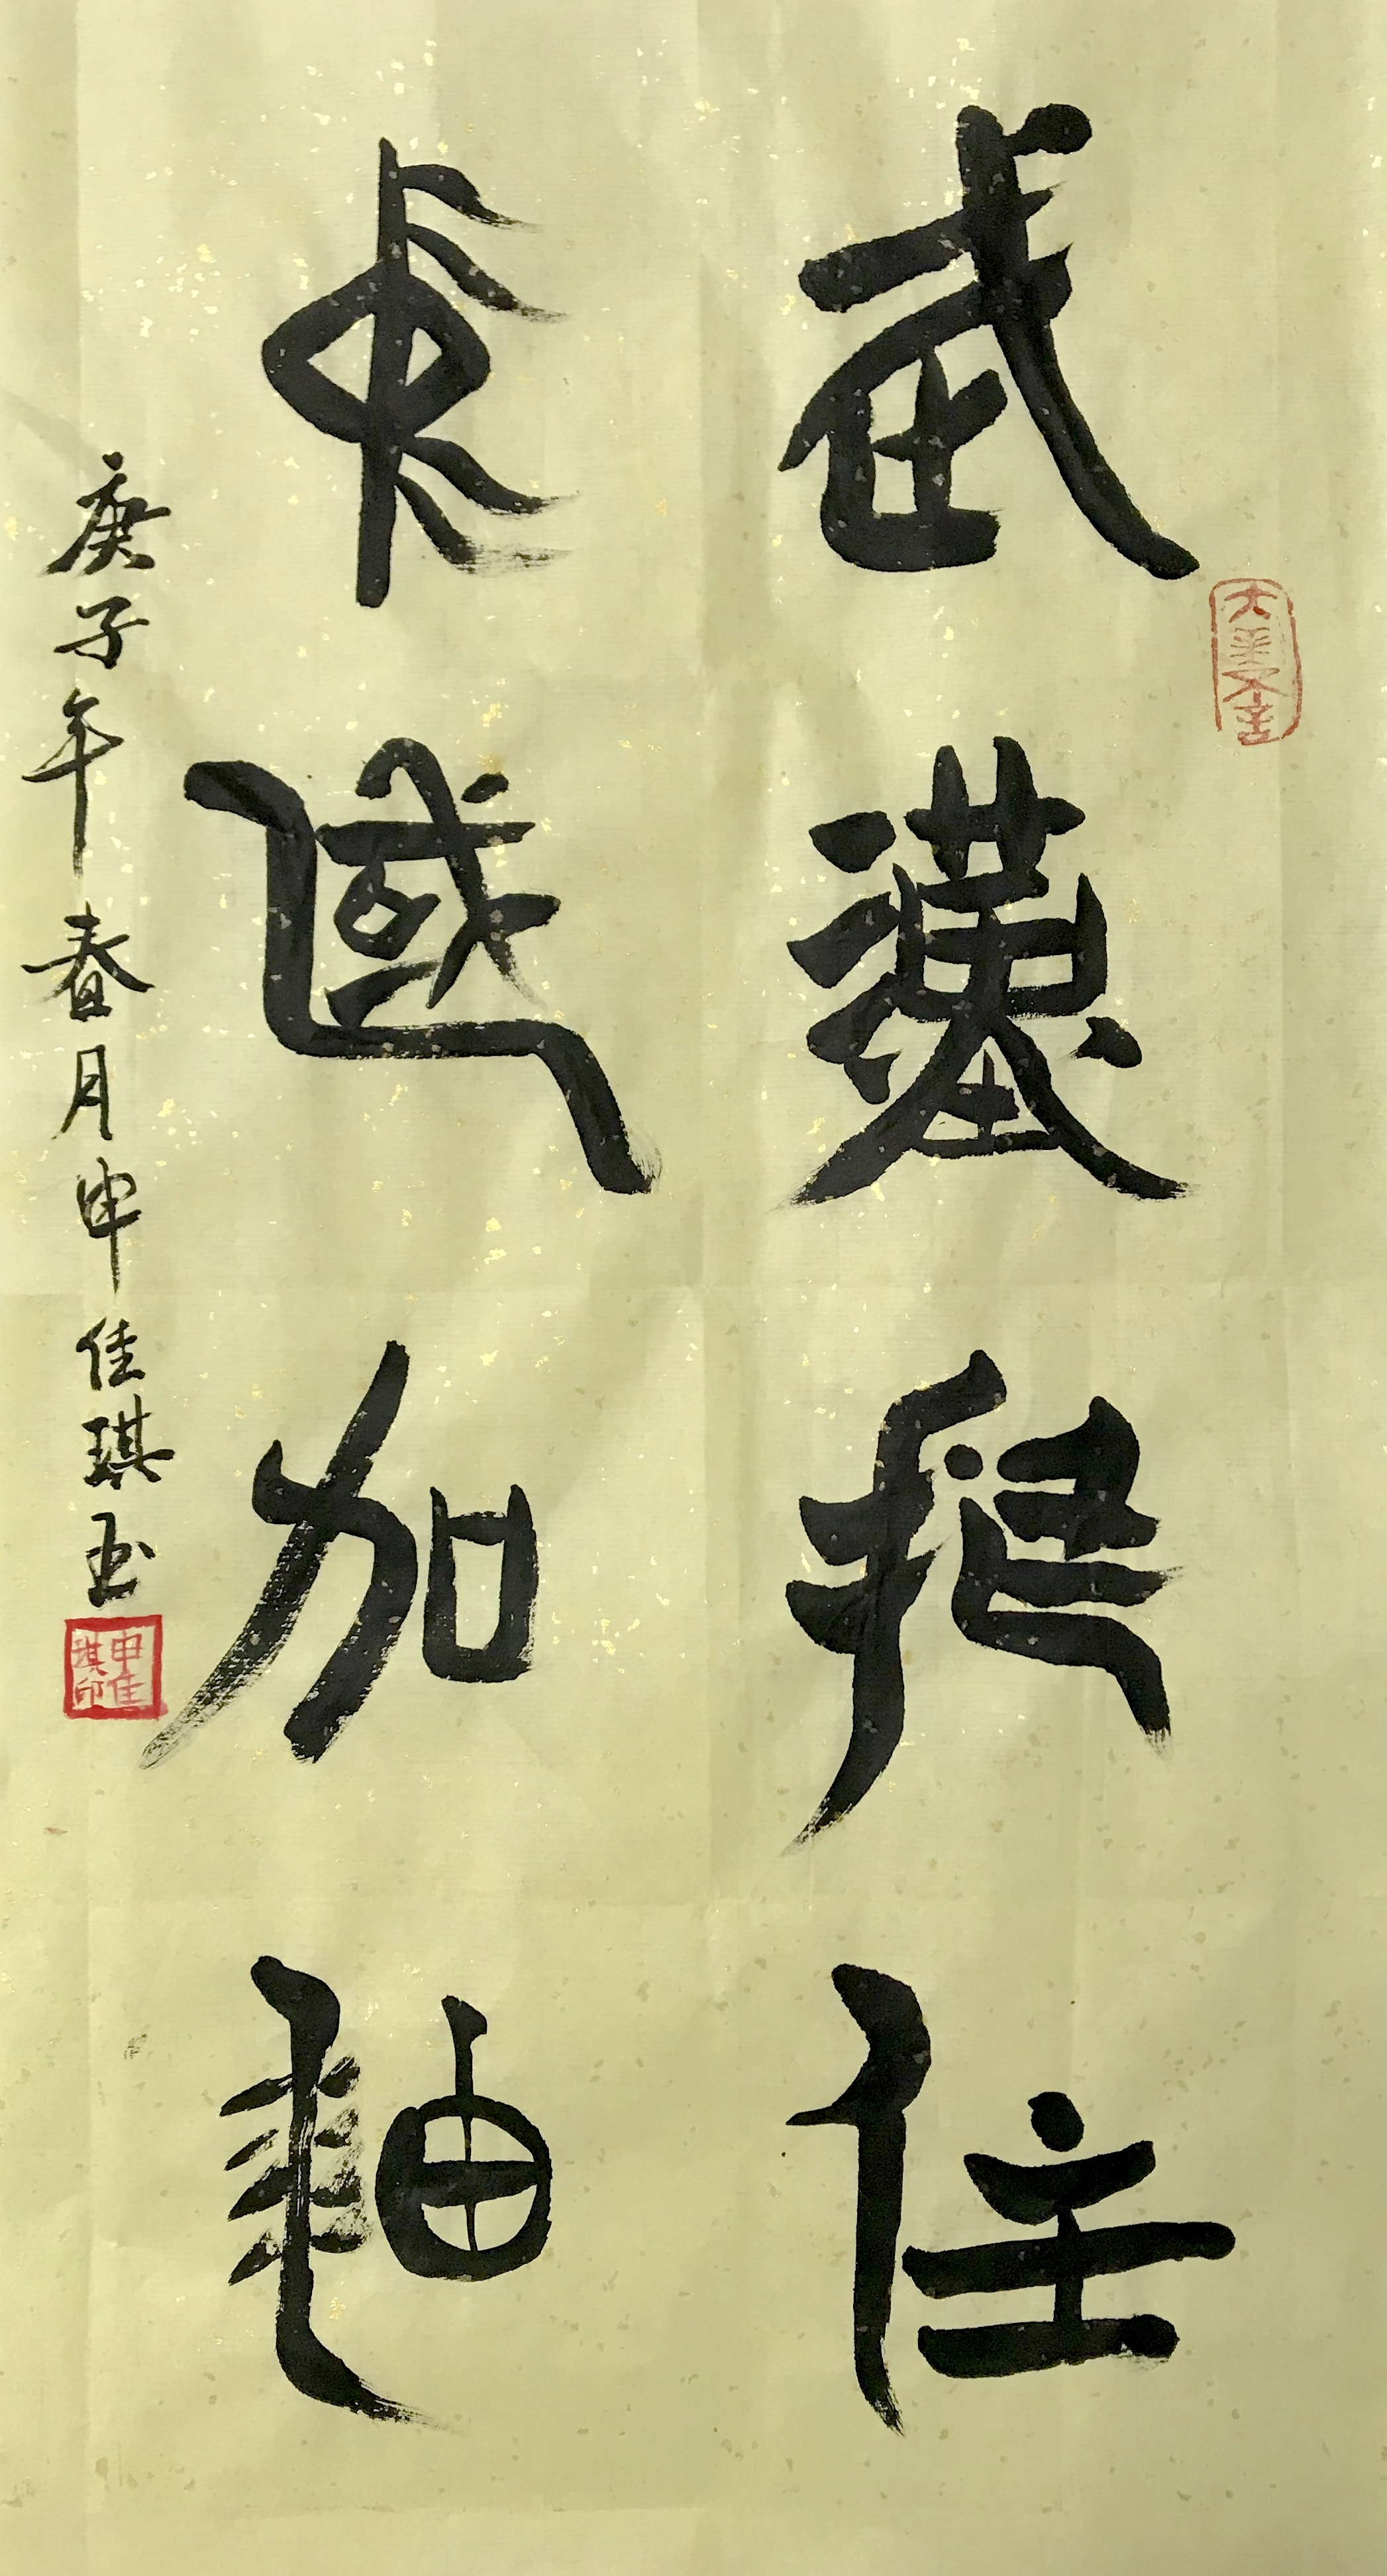 武漢挺住
中國加油
庚子年春月申佳琪书
大美不言
申佳琪印